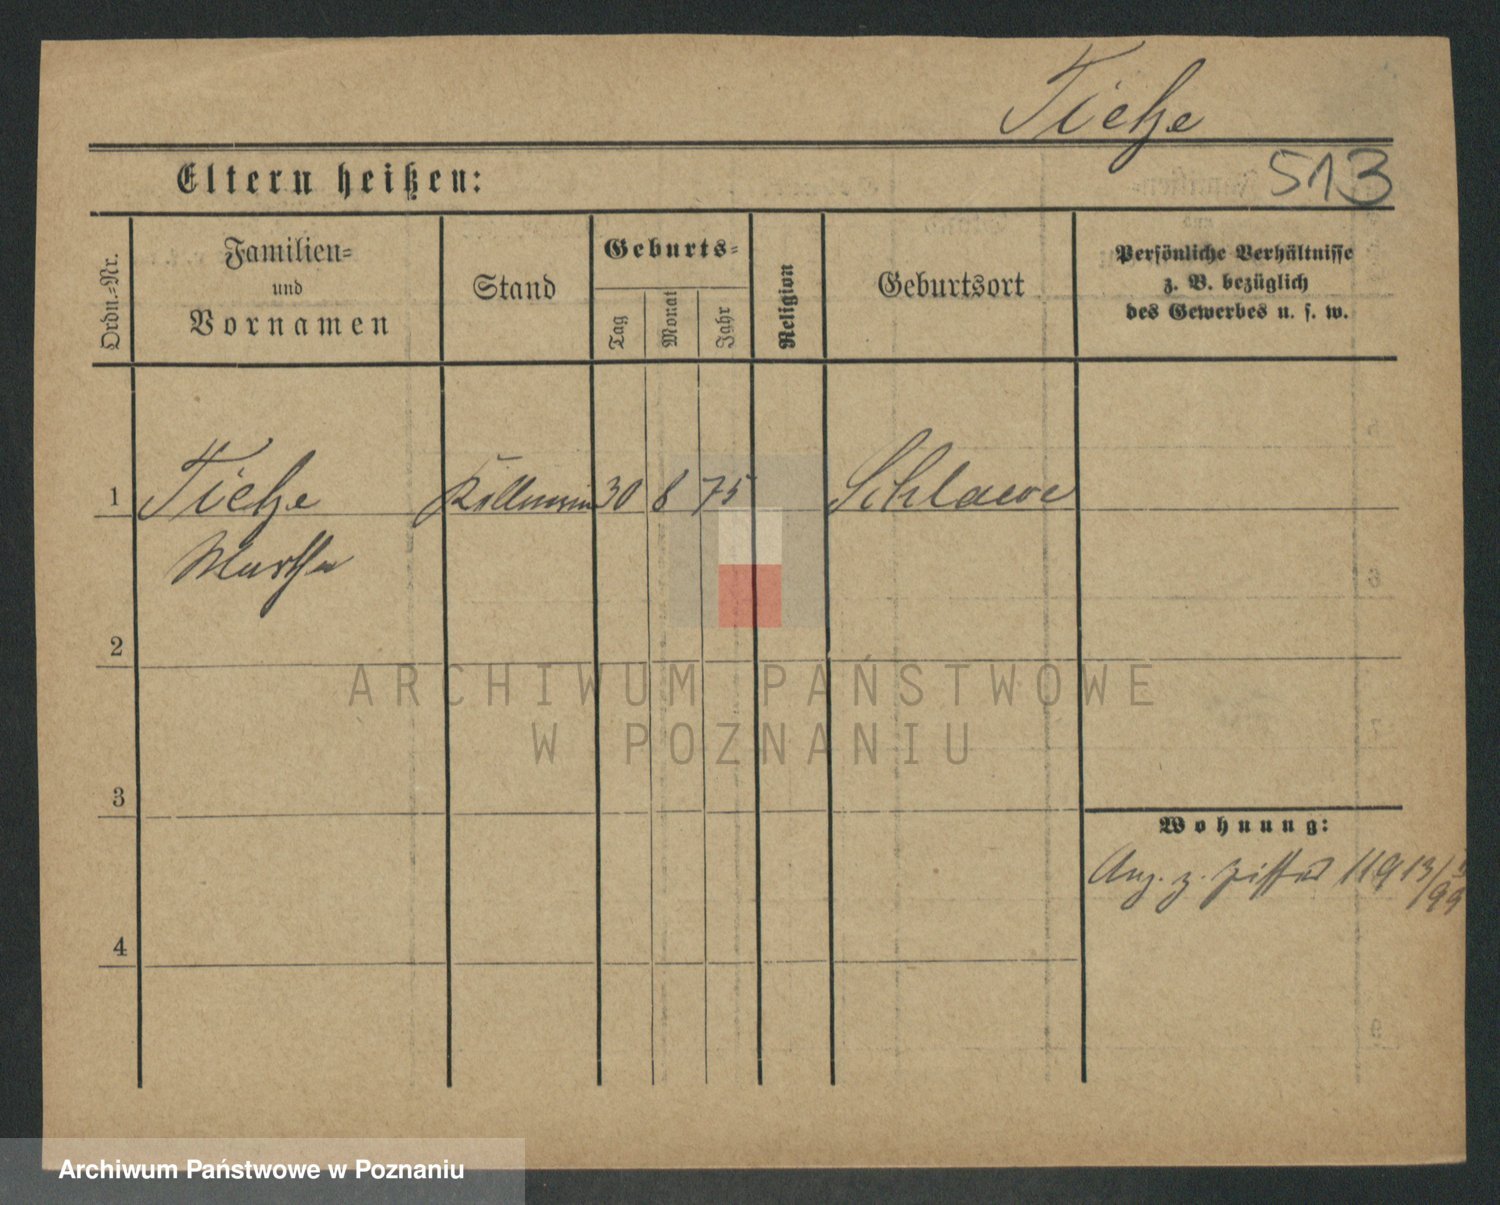 Tietze
513
Eltern heißen:
Ordn.-Nr.
Familien-
und
Vornamen
Stand
Geburts-
Tag
Monat
Jahr
Religion
Geburtsort
Persönliche Verhältnisse
z. B. bezüglich
des Gewerbes u. s. w.
1 Tietze Kellnerin 30 8 75 Schlawe
Martha
2
ARCHIWUM PAŃSTWOWE
W POZNANIU
3
Wohnung:
Anz. z. 119 13/5 99
4
Archiwum Państwowe w Poznaniu